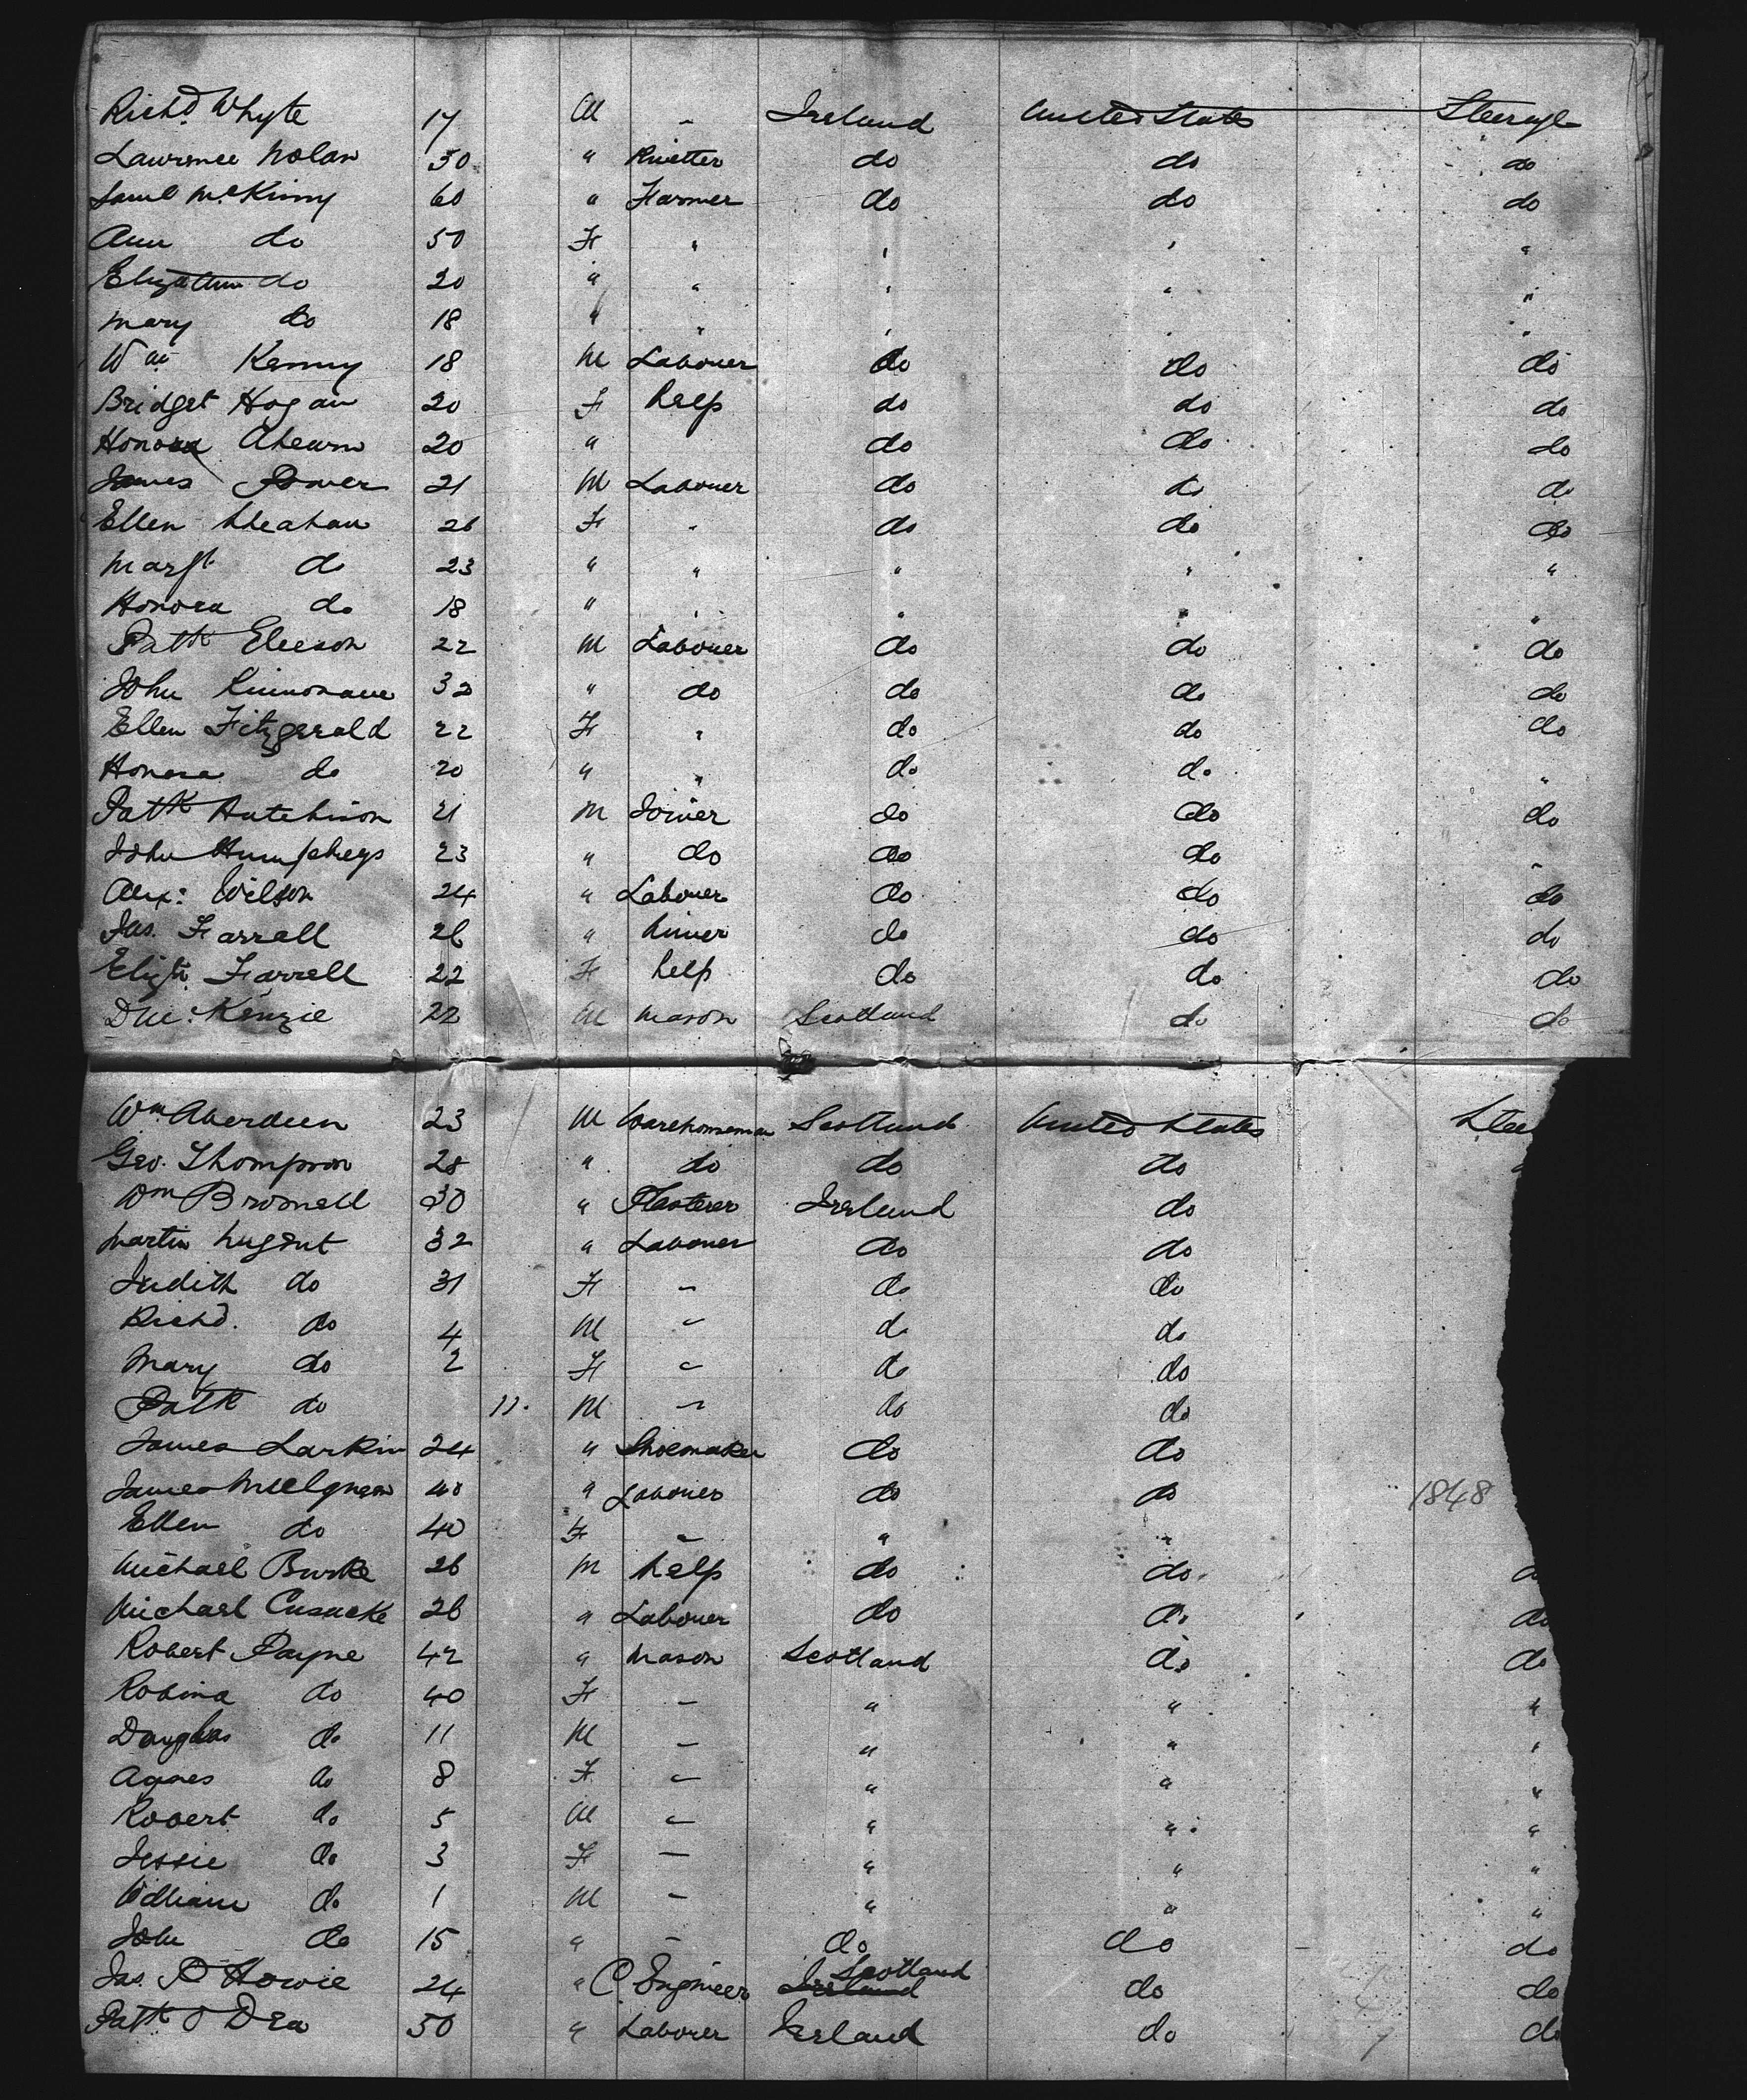 Richd. Whyte 17 M - Ireland United States Steerage
Lawrence Nolan 30 " Knitter do do do
Saml McKinny 60 " Farmer do do do
Ann do 50 F " " " "
Elizath do 20 " " " " "
Mary do 18 " " " " "
Wm Kenny 18 M Labouer do do do
Bridget Hogan 20 F help do do do
Honora Ahearn 20 " do do do
James Power 21 M Labouer do do do
Ellen Sheahan 26 F - do do do
Margt do 23 " " " " "
Honora do 18 " " " " "
Patk Eleeson 22 M Labouer do do do
John 32 " do do do do
Ellen Fitzgerald 22 F " do do do
Honora do 20 " " do do "
Patk Hutchison 21 M Joiner do do do
John Humphreys 23 " do do do "
Alex: Wilson 24 " Labouer do do do
Jas. Farrell 26 " Miner do do do
Elizth Farrell 22 F help do do do
D Mc: Kenzie 22 M Mason Scotland do do
Wm Aberdeen 23 M Warehouseman Scotland United States Stee
Geo. Thompson 28 " do do do
Wm Bromell 30 " Plasterer Ireland do
Martin Nugent 32 " Labouer do do
Judith do 31 F - do do
Richd. do 4 M - do do
Mary do 2 F - do do
Patk do 11. M - do do
James Larkin 24 " Shoemaker do do
James 40 " Labouer do do 1848
Ellen do 40 F - " "
Michael Burke 26 M help do do do
Michael Cusacke 26 " Labouer do do do
Robert Payne 42 " Mason Scotland do do
Robina do 40 F - " " "
Douglas do 11 M - " " "
Agnes do 8 F - " " "
Robert do 5 M - " " "
Jessie do 3 F - " " "
William do 1 M - " " "
John do 15 " - do do do
Jas. P Howie 24 " C Engineer Ireland Scotland do do
Patk O Dea 50 " Laborer Ireland do do